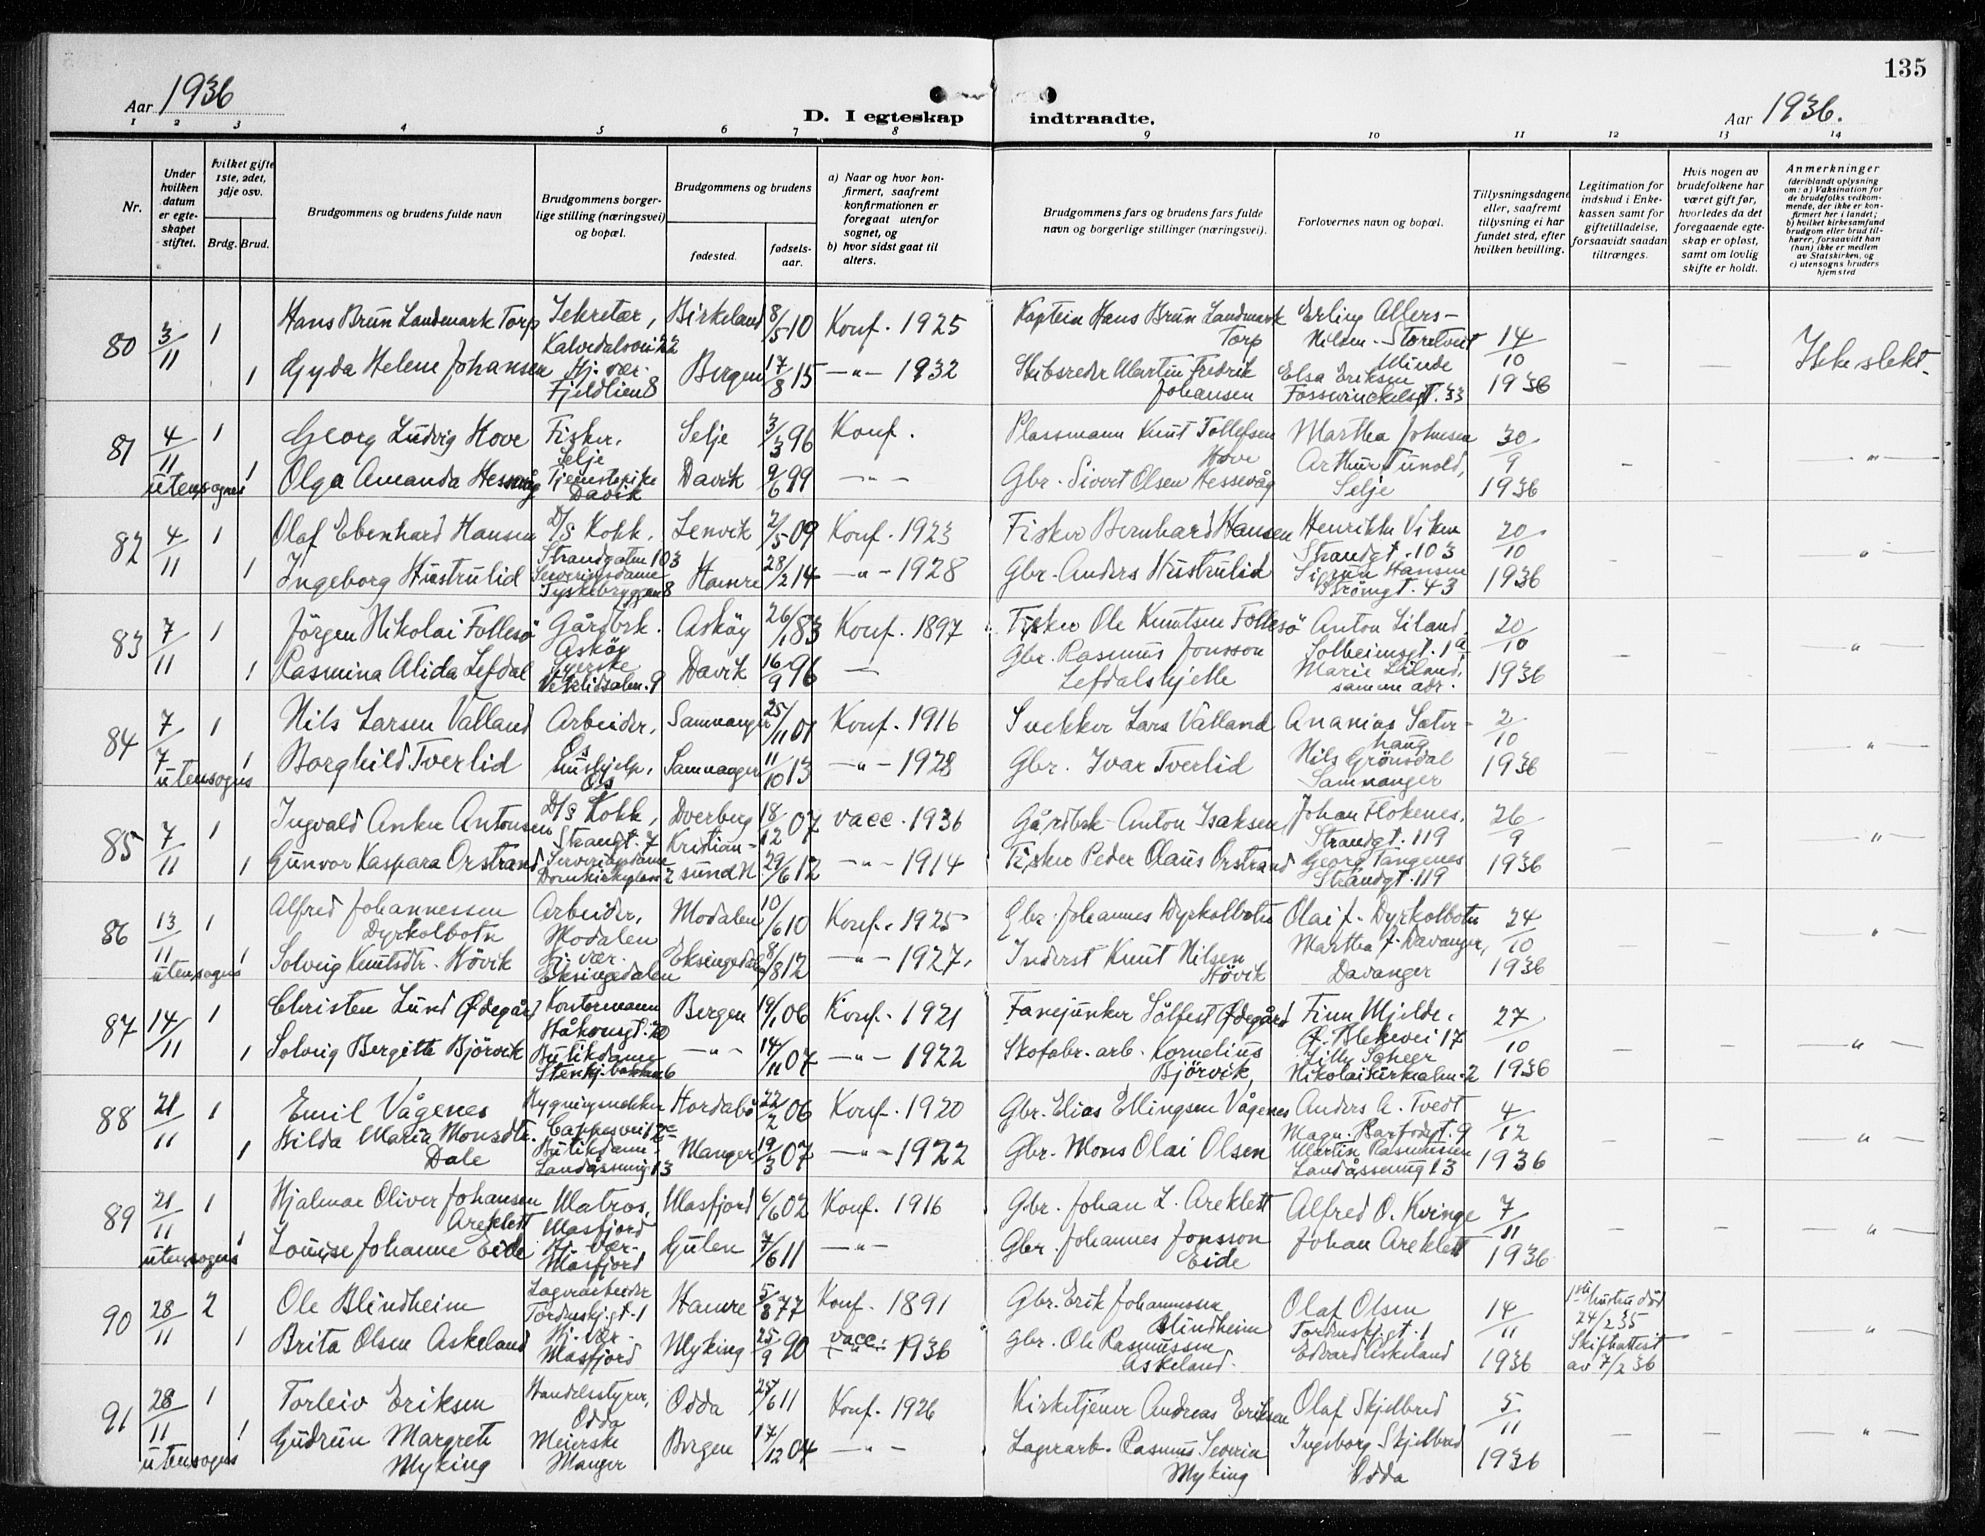 135
Aar 1936
D. I egteskap indtraadte.
Aar 1936.
1 2 3 4 5 6 7 8 9 10 11 12 13 14
Nr.
Under hvilken datum er egteskapet stiftet.
Hvilket gifte 1ste, 2det, 3dje osv.
Brdg. Brud.
Brudgommens og brudens fulde navn
Brudgommens borgerlige stilling (næringsvei) og bopæl.
Brudgommens og brudens
fødested.
fødselsaar.
a) Naar og hvor konfirmert, saafremt konfirmationen er foregaat utenfor sognet, og
b) hvor sidst gaat til alters.
Brudgommens fars og brudens fars fulde navn og borgerlige stillinger (næringsvei).
Forlovernes navn og bopæl.
Tillysningsdagene eller, saafremt tillysning ei har fundet sted, efter hvilken bevilling.
Legitimation for indskud i Enkekassen samt for giftetilladelse, forsaavidt saadan tiltrænges.
Hvis nogen av brudefolkene har været gift før, hvorledes da det foregaaende egteskap er opløst, samt om lovlig skifte er holdt.
Anmerkninger
(deriblandt oplysning om: a) Vaksination for de brudefolks vedkommende, der ikke er konfirmert her i landet; b) hvilket kirkesamfund brudgom eller brud tilhører, forsaavidt han (hun) ikke er medlem av Statskirken, og c) utensogns bruders hjemsted
80 3/11 1 Hans Brun Landmark Torp Sekretær, Kalvedalsvei 22 Birkeland 8/5 10 Konf. 1925 Kaptein Hans Brun Landmark Torp Erling Allers- Nilsen - Storetveit 14/10 1936 — — Ikke slekt.
1 Gyda Helene Johansen Hj. vær. Fjeldlien 8 Bergen 17/8 15 —"— 1932 Skibsreder Martin Fredrik Johansen Minde Elsa Eriksen Fosswinckelsgt. 33
81 4/11 utensogns 1 Georg Ludvig Hove Fisker, Selje Selje 3/3 96 Konf. Plassmann Knut Tollefsen Hove Martha Johnsen 30/9 1936 — — "
1 Olga Amanda Hessevåg Tjenestepike Davik Davik 9/6 99 —"— Gbr. Sivert Olsen Hessevåg Arthur Tunold, Selje
82 4/11 1 Olaf Ebenhard Hansen D/S Kokk, Strandgaten 103 Lenvik 2/5 09 Konf. 1923 Fisker Bernhard Hansen Henrikke Viken Strandgt. 103 20/10 1936 — — "
1 Ingeborg Hustrulid Serveringsdame Tyskebryggen 8 Hamre 28/2 14 —"— 1928 Gbr. Anders Hustrulid Sigrun Hansen Strömgt. 43
83 7/11 1 Jörgen Nikolai Follesö Gårdbrk. Asköy Asköy 26/1 83 Konf. 1897 Fisker Ole Knutsen Follesö Anton Liland, Solheimsgt. 1a 20/10 1936 — — "
1 Rasmina Alida Lefdal Syerske 9 Davik 16/9 96 — Gbr. Rasmus Jonsson Lefdalshjelle Marie Liland, samme adr.
84 7/7 utensogns 1 Nils Larsen Valland Arbeider, Os Samnanger 25/11 01 Konf. 1916 Snekker Lars Våtland Ananias Sæterhaug 2/10 1936 — — "
1 Borghild Tverlid Hushjelp, Os Samnanger 11/10 13 —"— 1928 Gbr. Ivar Tverlid Nils Grönsdal Samnanger
85 7/11 1 Ingvald Anker Antonsen D/S Kokk, Strandgt. 7 Dverberg 18/12 07 vacc. 1936 Gårdbrk. Anton Isaksen Johan Flokenes, Strandgt. 119 26/9 1936 "
1 Gunvor Kaspara Orstrand Serveringsdame Domkirkeplass 2 Kristiansund N. 29/6 12 —"— 1914 Fisker Peder Olaus Orstrand Georg Tangenes Strandgt. 119
86 13/11 utensogns 1 Alfred Johannessen Dyrkolbotn Arbeider, Modalen Modalen 10/6 10 Konf. 1925 Gbr. Johannes Dyrkolbotn Olai J. Dyrkolbotn 24/10 1936 — — "
1 Solveig Knutsdtr. Hövik Hj. vær. Eksingedalen Eksingedal 8/8 12 —"— 1927. Inderst Knut Nilsen Hövik Martha J. Davanger, Davanger
87 14/11 1 Christen Lund Ödegård Kontormann Håkonsgt. 20 Bergen 19/1 06 Konf. 1921 Fanejunker Sölfest Ødegård Finn Mjelde, 17 27/10 1936 — — "
1 Solveig Bergitte Björvik Butikdame 6 —"— 14/11 07 —"— 1922 Skofabr. arb. Kornelius Björvik Lilly Scheer Nikolaikirkealm. 2
88 21/11 1 Emil Vågenes Bygningsnekker Hordabö 22/2 06 Konf. 1920 Gbr. Elias Ellingsen Vågenes Anders A. Tvedt Magn. Barfodgt. 9 4/12 1936 — — "
1 Hilda Maria Monsdtr. Dale Butikdame Landåssving 13 Manger 19/3 07 —"— 1922 Gbr. Mons Olai Olsen Martin Rasmussen Landåssving 13
89 21/11 utensogns 1 Hjalmar Oliver Johansen Areklett Matros, Masfjord Masfjord 6/6 02 Konf. 1916 Gbr. Johan L. Areklett Alfred O. Kvinge 7/11 1936 — — "
1 Louise Johanne Eide Hj. vær. Masfjord Gulen 7/6 11 —"— Gbr. Johannes Jonsson Eide Johan Areklett
90 28/11 2 Ole Blindheim Lagerarbeider Tordenskj.gt. 1 Hamre 5/8 77 Konf. 1891 Gbr. Erik Johannessen Blindheim Olaf Olsen Tordenskj.gt. 1 14/11 1936 1ste hustru död 24/2 35 Skifteattest av 7/2 36 — "
1 Brita Olsen Askeland Hj. vær. Masfjord Myking 25/9 90 vacc. 1936 Gbr. Ole Rasmussen Askeland. Edvard Askeland
91 28/11 utensogns 1 Torleiv Eriksen Handelsstyrer, Odda Odda 25/6 11 Konf. 1926 Kirketjener Andreas Eriksen Olaf Skjelbred 5/11 1936 — — "
1 Gudrun Margrete Myking Meierske Manger Bergen 17/12 04 —"— Lagerarb. Rasmus Severin Myking Ingeborg Skjelbred Odda